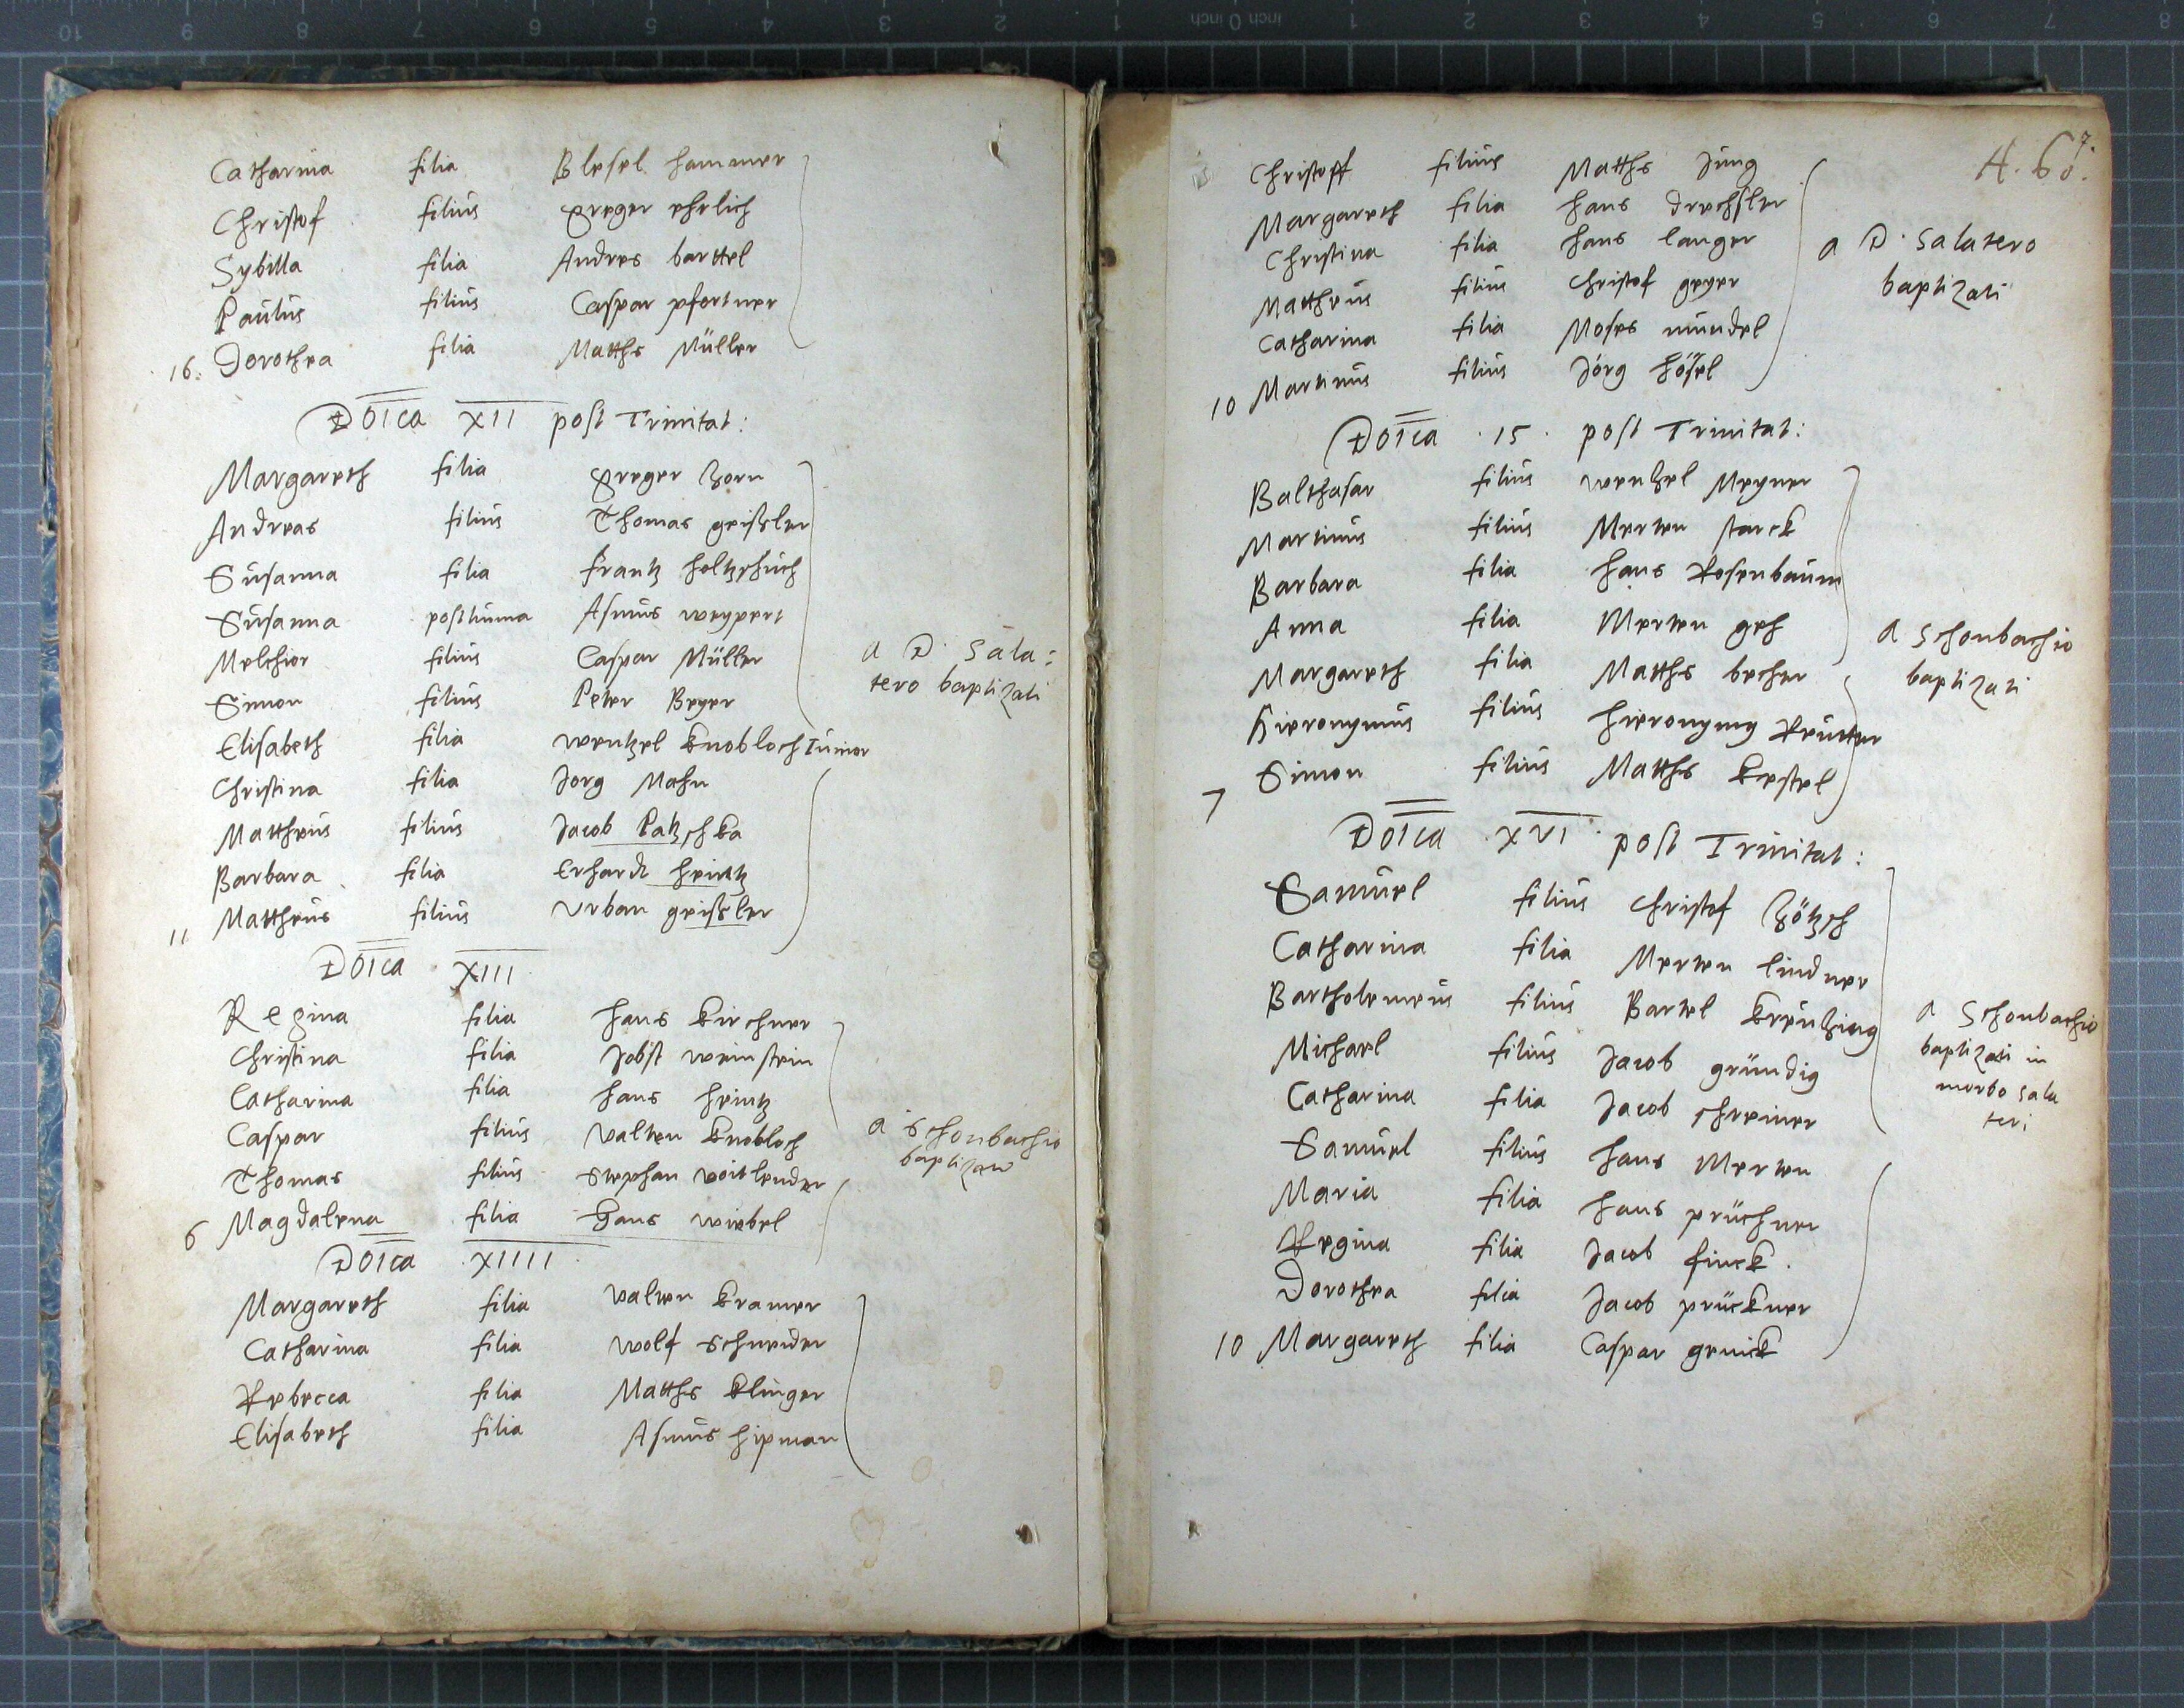 Catharina filia Blesel hammer
Christof filius Greger ehrlich
Sybilla filia Andres barttel
Paulus filius Caspar pfortner
16. Dorothea filia Matths Müller
Dōica XII post Trinitat:
Margareth filia Greger Zorn
Andreas filius Thomas geißler
Susanna filia frantz holtzschuch
Susanna posthuma Asmus weypert
Melchior filius Caspar Müller
Simon filius Peter Beyer
Elisabeth filia wentzel knobloch Iunior
Christina filia Jorg Mahn
Mattheus filius Jacob Patzschka
Barbara filia Erhardt heintz
11 Mattheus filius Vrban geißler
a D. Sala:
tero baptizati
Dōica XIII
Regina filia hans kirchner
Christina filia Jobst weinstein
Catharina filia hans heintz
Caspar filius Valten knobloch
Thomas filius Stephan voitlender
6 Magdalena filia Hans wiebel
a Schonbachio
baptizati
Dōica XIIII
Margareth filia Valten kramer
Catharina filia Wolf Schneider
Rebecca filia Matths klinger
Elisabeth filia Asmus hipman
Christoff filius Matths Jung
Margareth filia hans drechsler
Christina filia hans langer
Mattheus filius Christof geyer
Catharina filia Moses mundel
10 Martinus filius Jörg Hösel
a D. Salatero
baptizati
Dōica 15. post Trinitat:
Balthasar filius wentzel Meyner
Martinus filius Merten starck
Barbara filia hans Rosenbaum
Anna filia Merten geh
Margareth filia Matths becher
Hieronymus filius hieronymus Reutter
7 Simon filius Matths kestel
a Schonbachio
baptizati
Dōica XVI post Trinitat:
Samuel filius Christof Zötzsch
Catharina filia Merten lindner
Bartholemeus filius Bartel kreutzing
Michael filius Jacob gründig
Catharina filia Jacob schreiner
Samuel filius hans Merten
Maria filia hans prüchner
Regina filia Jacob finck.
Dorothea filia Jacob prückner
10 Margareth filia Caspar genick
a Schonbachio
baptizati in
morbo Sala
teri